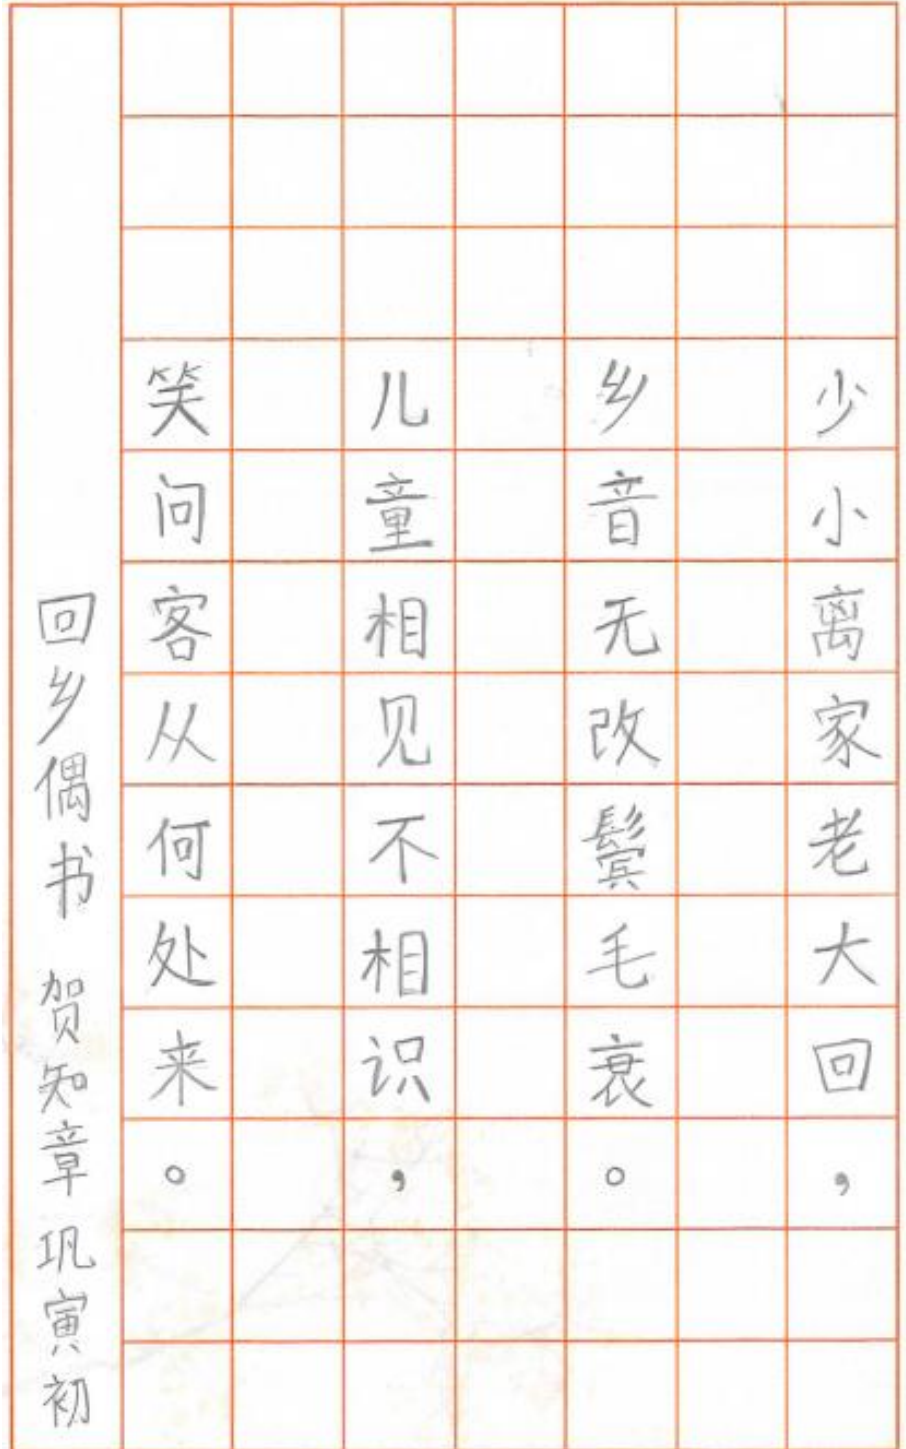 少小离家老大回，
乡音无改鬓毛衰。
儿童相见不相识，
笑问客从何处来。
回乡偶书 贺知章 巩寅初